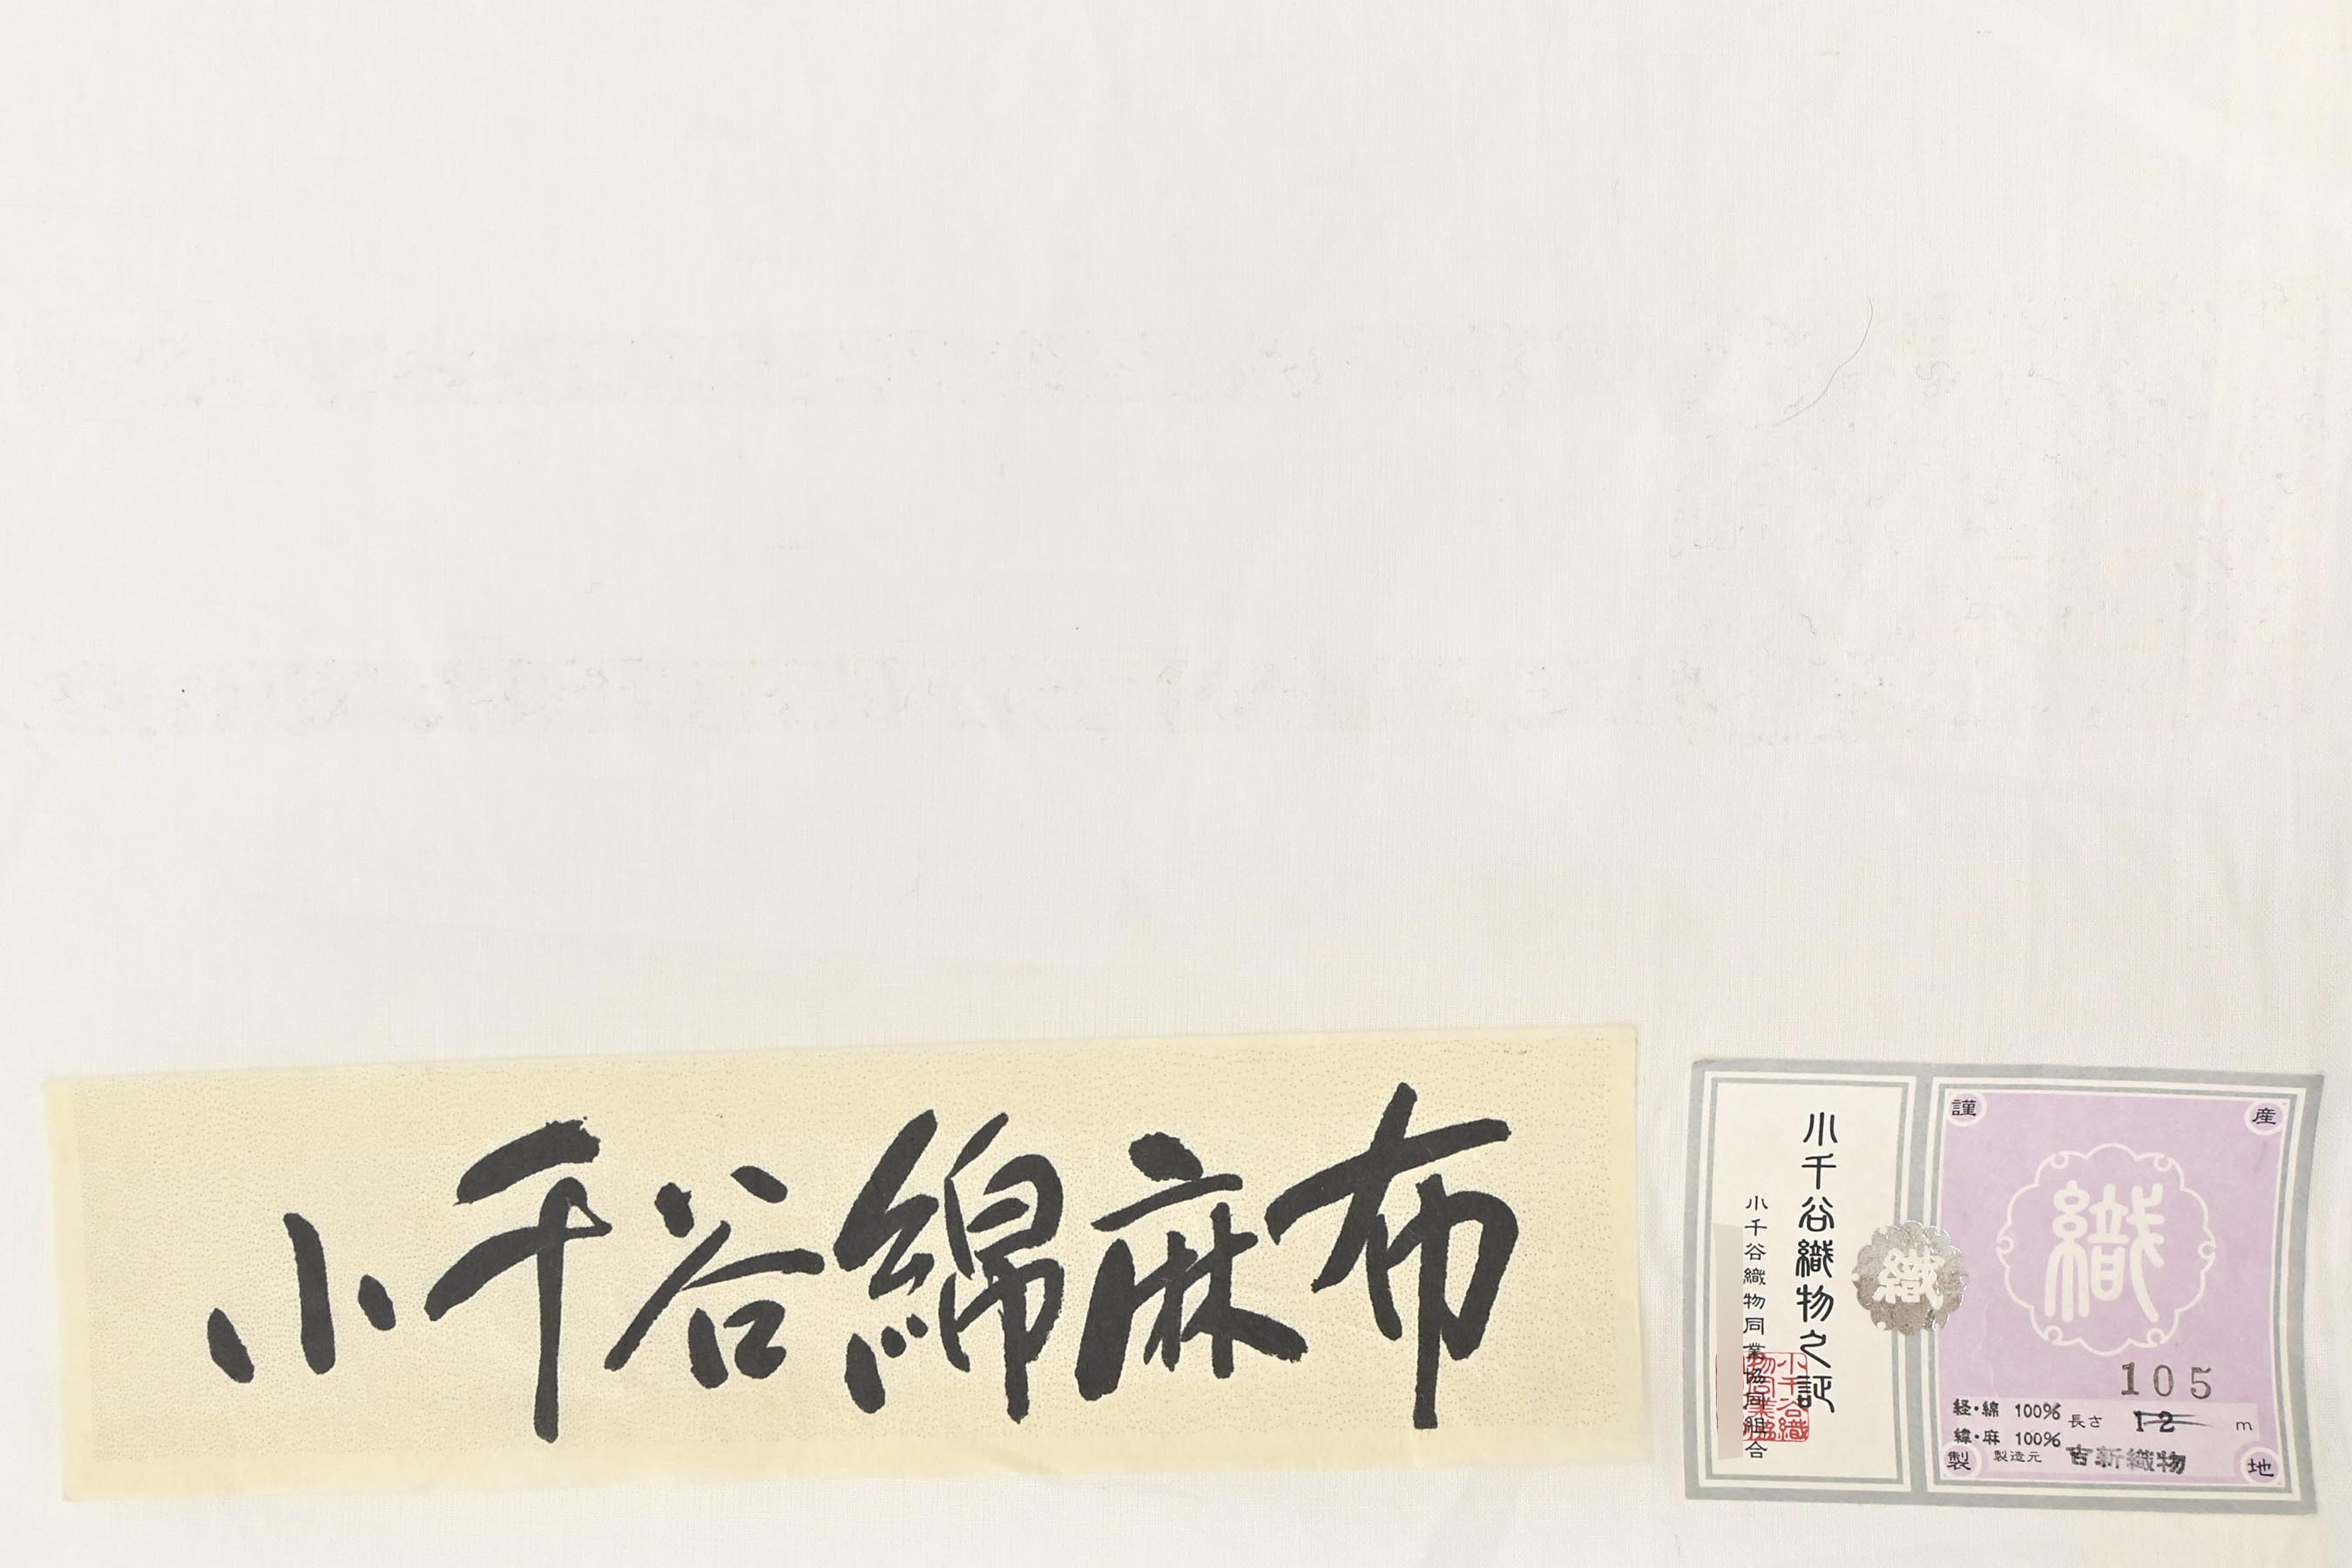 小千谷綿麻布
小千谷織物之証
小千谷織物同業協同組合
織
謹
産
織
105
経・綿 100% 長さ 12 m
緯・麻 100%
製 製造元 吉新織物 地